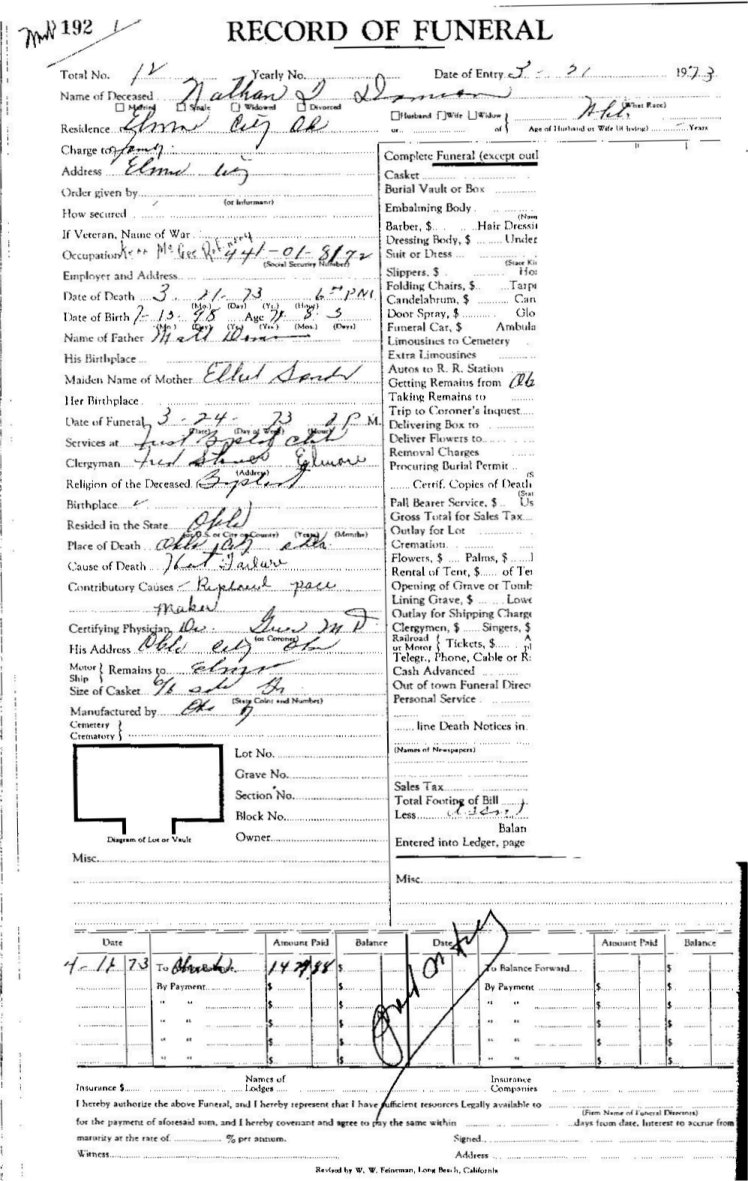 192 1
RECORD OF FUNERAL
Total No. 12 Yearly No. Date of Entry 3 - 21 1973
Name of Deceased Nathan
Married Single Widowed Divorced (What Race)
Residence Elmore City Husband Wife Widow
or of Age of Husband or Wife (if living) Years
Charge to family
Address Elmore City
Order given by
(or Informant)
How secured
If Veteran, Name of War
Occupation Kerr McGee 441-01-8172
(Social Security Number)
Employer and Address
Date of Death 3 21 73 6 PM
(Mo.) (Day) (Yr.) (Hour)
Date of Birth 7-13-98 Age 8
(Mo.) (Day) (Yr.) (Yrs.) (Mos.) (Days)
Name of Father Matt
His Birthplace
Maiden Name of Mother
Her Birthplace
Date of Funeral 3 - 24 - 73 2 P.M.
(Date) (Day of Week) (Hour)
Services at First Baptist
Clergyman Fred Elmore
(Address)
Religion of the Deceased Baptist
Birthplace
Resided in the State Okla
(or U.S. or City or County) (Years) (Months)
Place of Death Okla City Okla
Cause of Death Heart Failure
Contributory Causes - Replaced pace
Maker
Certifying Physician Dr. M D
(or Coroner)
His Address Okla City Okla
Motor Ship Remains to Elmore
Size of Casket 6/6
(State Color and Number)
Manufactured by
Cemetery
Crematory
Lot No.
Grave No.
Section No.
Block No.
Owner
Diagram of Lot or Vault
Misc.
Complete Funeral (except outl
Casket
Burial Vault or Box
Embalming Body
(Nam
Barber, $ Hair Dressin
Dressing Body, $ Under
Suit or Dress
(State Ki
Slippers, $ Hos
Folding Chairs, $ Tarp
Candelabrum, $ Can
Door Spray, $ Glo
Funeral Car, $ Ambula
Limousines to Cemetery
Extra Limousines
Autos to R. R. Station
Getting Remains from
Taking Remains to
Trip to Coroner's Inquest
Delivering Box to
Deliver Flowers to
Removal Charges
Procuring Burial Permit
(S
Certif. Copies of Death
(Stat
Pall Bearer Service, $ Us
Gross Total for Sales Tax
Outlay for Lot
Cremation
Flowers, $ Palms, $
Rental of Tent, $ of Te
Opening of Grave or Tomb
Lining Grave, $ Lowe
Outlay for Shipping Charge
Clergymen, $ Singers, $
Railroad or Motor Tickets, $
Telegr., Phone, Cable or R
Cash Advanced
Out of town Funeral Direc
Personal Service
line Death Notices in
(Names of Newspapers)
Sales Tax
Total Footing of Bill
Less
Balan
Entered into Ledger, page
Misc.
Date Amount Paid Balance Date Amount Paid Balance
4-11 73 To $ To Balance Forward $
By Payment $ $ By Payment $ $
" " $ $ " " $ $
" " $ $ " " $ $
" " $ $ " " $ $
Insurance $ Names of Lodges Insurance Companies
I hereby authorize the above Funeral, and I hereby represent that I have sufficient resources Legally available to
(Firm Name of Funeral Directors)
for the payment of aforesaid sum, and I hereby covenant and agree to pay the same within days from date, Interest to accrue from
maturity at the rate of % per annum. Signed
Witness Address
Revised by W. W. Feineman, Long Beach, California